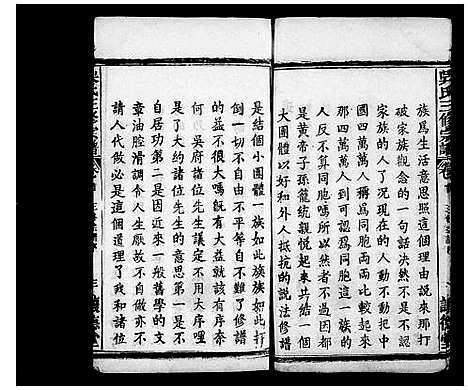 族爲生活意思照這個理由説來那打
破家族觀念的一句話決然不是不認
家族的人了况現在的人動不動把中
國四萬萬人稱爲同胞兩兩比較起來
那四萬萬人到可認爲同胞這一族的
人反不算同胞嗎所以然者不過因都
是黃帝子孫籠統親悦起來共結一個
大團體以好和外人抵抗的説法修譜
是結個小團體一族如此族族如此打
倒一切不自由不平等自不難了修譜
的益不很大嗎既有大益就該有序奈
何 吳府諸位先生議定不用大序哩
了大約諸位先生的意思第一是不
自居功第二是因近來一般舊學的文
章油腔滑調令人生厭故不自做亦不
請人代做必是這個道理了我和諸位